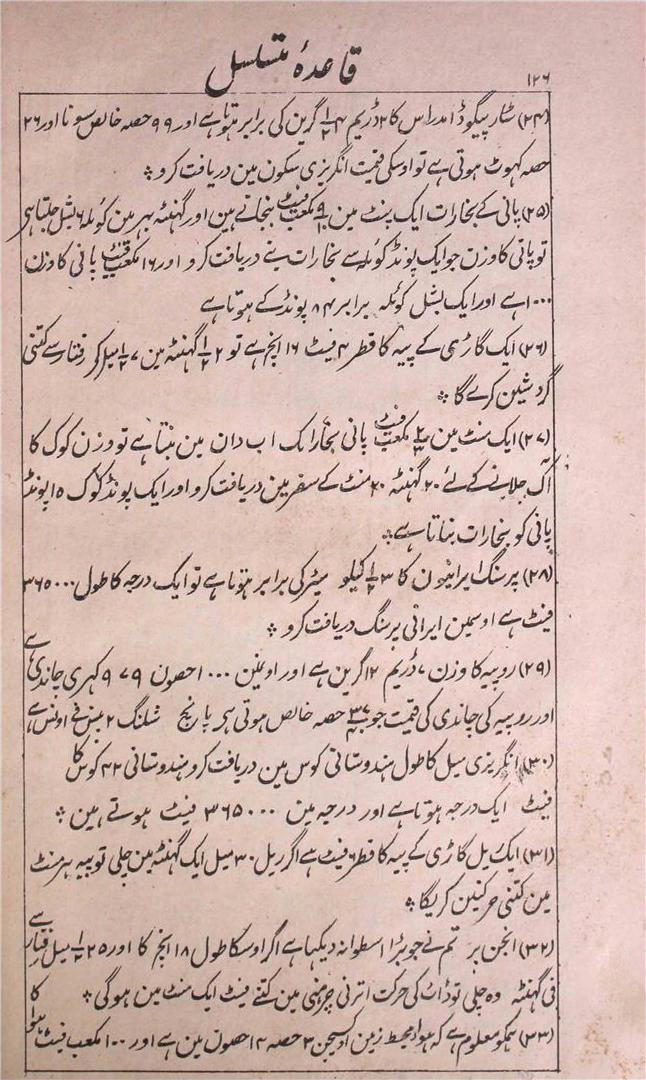 ۱۲۶
قاعدهٔ متسلسل
(۲۴) سٹار پیگوڈا مدراس کا ۲ ڈریم ۴ ۱/۲ گرین کی برابر ہوتا ہے اور ۹۹ حصہ خالص سونا اور ۲۶
حصہ کھوٹ ہوتی ہے تو اوسکی قیمت انگریزی سکون مین دریافت کرو
(۲۵) پانی کے بخارات ایک منٹ مین مکعب فیٹ بنجاتے ہین اور گھنٹہ بہر مین کوئلہ ۶ بشل جلتا ہی
تو پانی کا وزن جو ایک پونڈ کوئلہ سے بخارات بنے دریافت کرو اور ۱۶ مکعب فیٹ پانی کا وزن
۱۰۰۰ ہے اور ایک بشل کوئلہ برابر ۸۴ پونڈ کے ہوتا ہے
(۲۶) ایک گاڑی کے پیہ کا قطر ۴ فیٹ ۱۶ انچ ہے تو ۲ ۱/۲ گھنٹہ مین ۷ ۱/۲ میل کر رفتار سے کتنی
گردشین کرے گا
(۲۷) ایک منٹ مین مکعب فیٹ پانی بخار ایک اب دان مین بنتا ہے تو وزن کوک کا
اک جلانے کے لئے ۲۰ گھنٹہ ۲۰ منٹ کے سفر مین دریافت کرو اور ایک پونڈ کوک ۱۵ پونڈ
پانی کو بخارات بناتا ہے
(۲۸) پرسنگ ایرانیون کا ۳ ۱/۲ کیلو میٹر کی برابر ہوتا ہے تو ایک درجہ کا طول ۳۶۵۰۰۰
فیٹ ہے اوسمین ایرانی پرسنگ دریافت کرو
(۲۹) روپیہ کا وزن ۷ ڈریم ۱۲ گرین ہے اور اوسمین ۱۰۰۰ حصون ۹۷۹ کہری چاندی ہے
اور روپیہ کی چاندی کی قیمت جو ۳۷/۴۰ حصہ خالص ہوتی ہی پانچ شلنگ ۲ پنس فی اونس ہے
(۳۰) انگریزی میل کا طول ہندوستانی کوس مین دریافت کرو ہندوستانی ۴۲ کوس کا
فیٹ ایک درجہ ہوتا ہے اور درجہ مین ۳۶۵۰۰۰ فیٹ ہوتے ہین
(۳۱) ایک ریل گاڑی کے پیہ کا قطر ۶ فیٹ ہے اگر ریل ۳۰ میل ایک گھنٹہ مین چلی تو پیہ ہر منٹ
مین کتنی حرکتین کریگا
(۳۲) انجن پر تم نے جو بڑا اسطوانہ دیکہا ہے اگر اوسکا طول ۱۸ انچ کا اور ۲۵ ۱/۲ میل رفتار سے
فی گھنٹہ وہ چلی تو ڈاٹ کی حرکت اترنی چڑہنی مین کتنے فیٹ ایک منٹ مین ہو گی
(۳۳) ہمکو معلوم ہے کہ ہوا محیط زمین اوکسیجن ۳ حصہ ۱۴ حصون مین ہے اور ۱۰۰ مکعب فیٹ ہوا کا